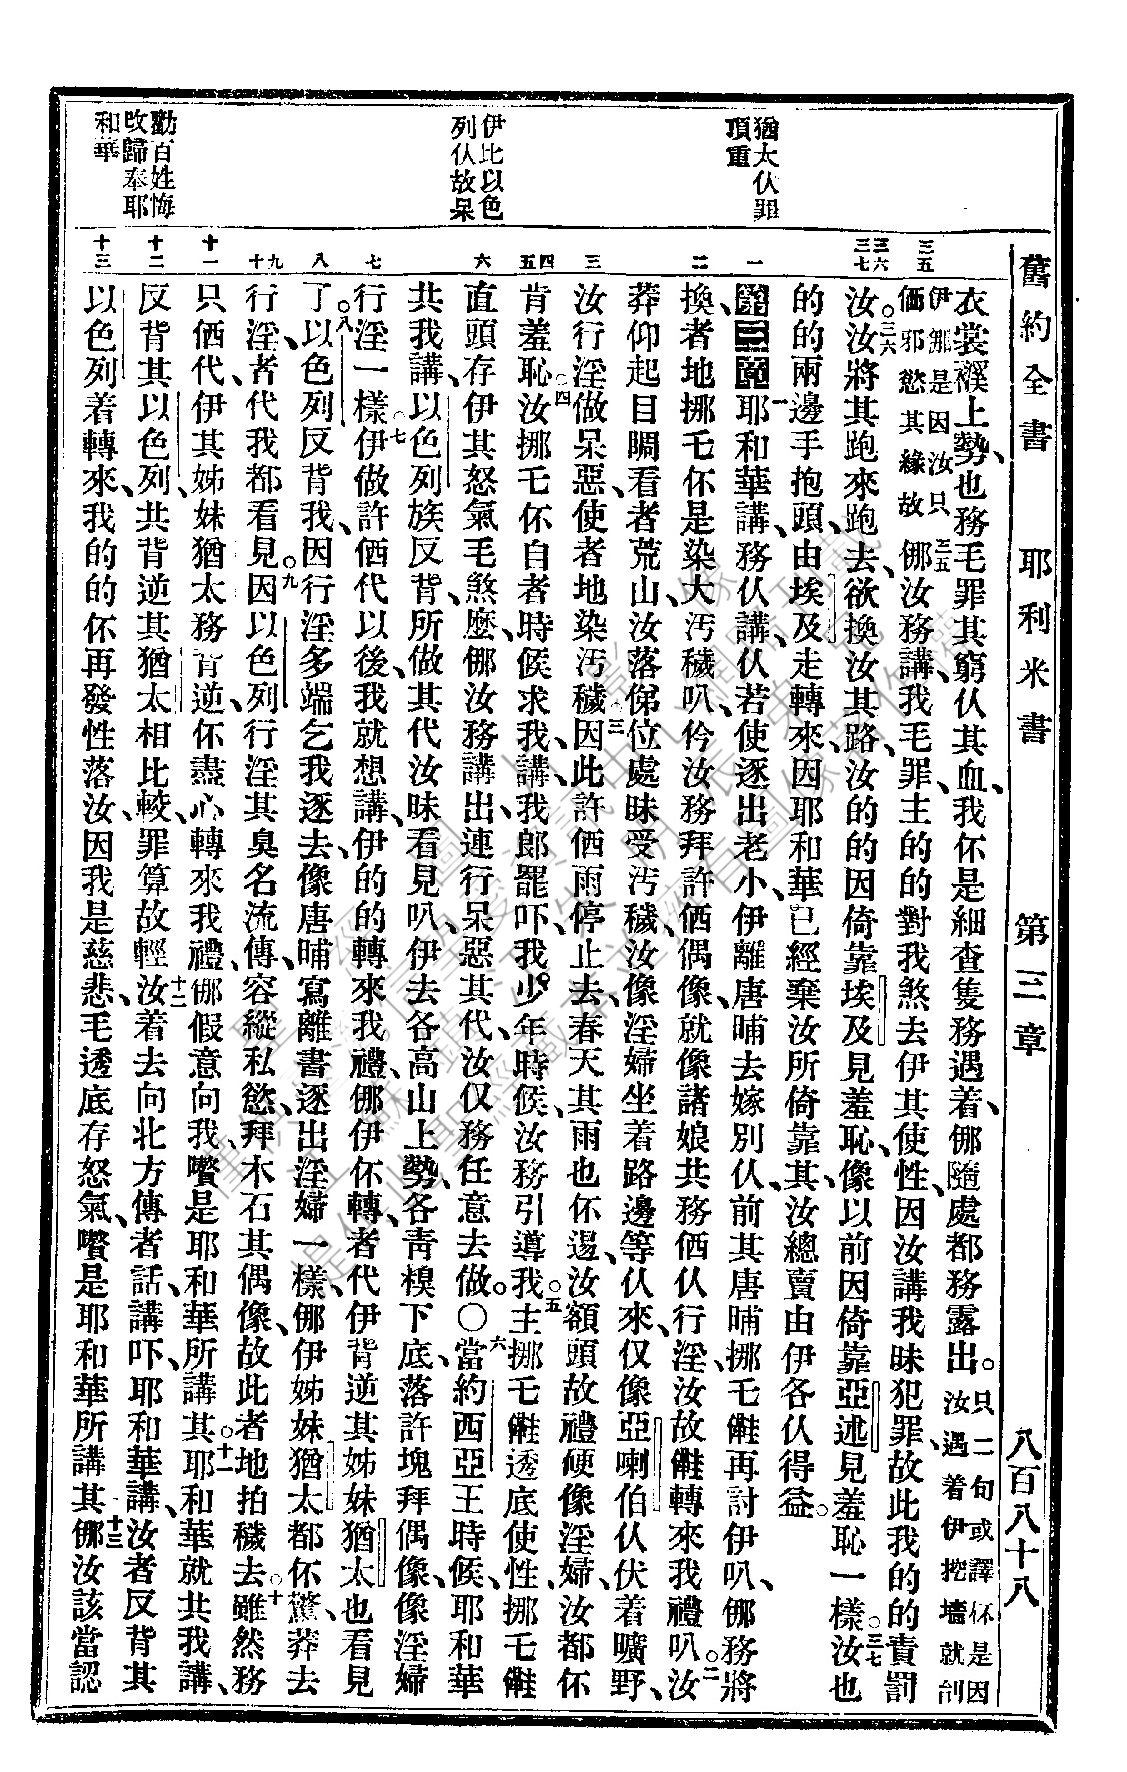 舊約全書 耶利米書 第三章 八百八十八
猶太伙罪
頂重
伊比以色
列伙故呆
勸百姓悔
改歸奉耶
和華
三五
三六
三七
一
二
三
四
五
六
七
八
九
十
十一
十二
十三
衣裳襆上勢、也務毛罪其窮伙其血、我伓是細查隻務遇着、㑚隨處都務露出。只二句或譯伓是因汝遇着伊挖墻就剖
伊㑚是因汝只価邪慾其緣故 三五㑚汝務講、我毛罪、主的的對我煞去伊其使性、因汝講我昧犯罪、故此我的的責罰
汝。三六汝將其跑來跑去、欲換汝其路、汝的的因倚靠埃及見羞恥、像以前因倚靠亞述見羞恥一樣。三七汝也
的的兩邊手抱頭、由埃及走轉來、因耶和華已經棄汝所倚靠其、汝總賣由伊各伙得益。
第三章 一耶和華講、務伙講、伙若使逐出老小、伊離唐晡去嫁別伙、前其唐晡挪乇㒀再討伊叭、㑚務將
換、者地挪乇伓是染大汚穢叭、伶汝務拜許価偶像、就像諸娘共務価伙行淫、汝故㒀轉來我禮叭。二汝
莽仰起目睭看者荒山、汝落俤位處昧受汚穢、汝像淫婦坐着路邊、等伙來、仅像亞喇伯伙伏着曠野、
汝行淫做呆惡、使者地染汚穢。三因此許価雨停止去、春天其雨也伓逿、汝額頭故禮硬像淫婦、汝都伓
肯羞恥。四汝挪乇伓自者時候求我、講、我郎罷吓、我少年時候、汝務引導我。五主挪乇㒀透底使性、挪乇㒀
直頭存伊其怒氣毛煞麼、㑚汝務講出、連行呆惡其代、汝仅務任意去做。○六當約西亞王時候、耶和華
共我講、以色列族反背、所做其代汝昧看見叭、伊去各高山上勢、各靑模下底、落許塊拜偶像、像淫婦
行淫一樣。七伊做許価代以後、我就想講、伊的的轉來我禮、㑚伊伓轉、者代伊背逆其姊妹猶太也看見
了。八以色列反背我、因行淫多端乞我逐去、像唐晡寫離書逐出淫婦一樣、㑚伊姊妹猶太都伓驚、莽去
行淫、者代我都看見。九因以色列行淫其臭名流傳、容縱私慾、拜木石其偶像、故此者地拍穢去。十雖然務
只価代、伊其姊妹猶太務背逆、伓盡心轉來我禮、㑚假意向我、嚽是耶和華所講其。十一耶和華就共我講、
反背其以色列、共背逆其猶太相比較、罪算故輕。十二汝着去向北方傳者話、講吓、耶和華講、汝者反背其
以色列着轉來、我的的伓再發性落汝、因我是慈悲、毛透底存怒氣、嚽是耶和華所講其。十三㑚汝該當認